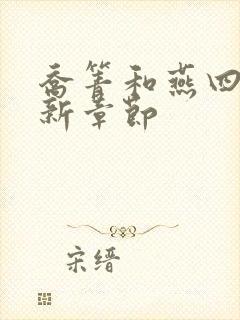 乔箐和燕四
新章节
宋缙